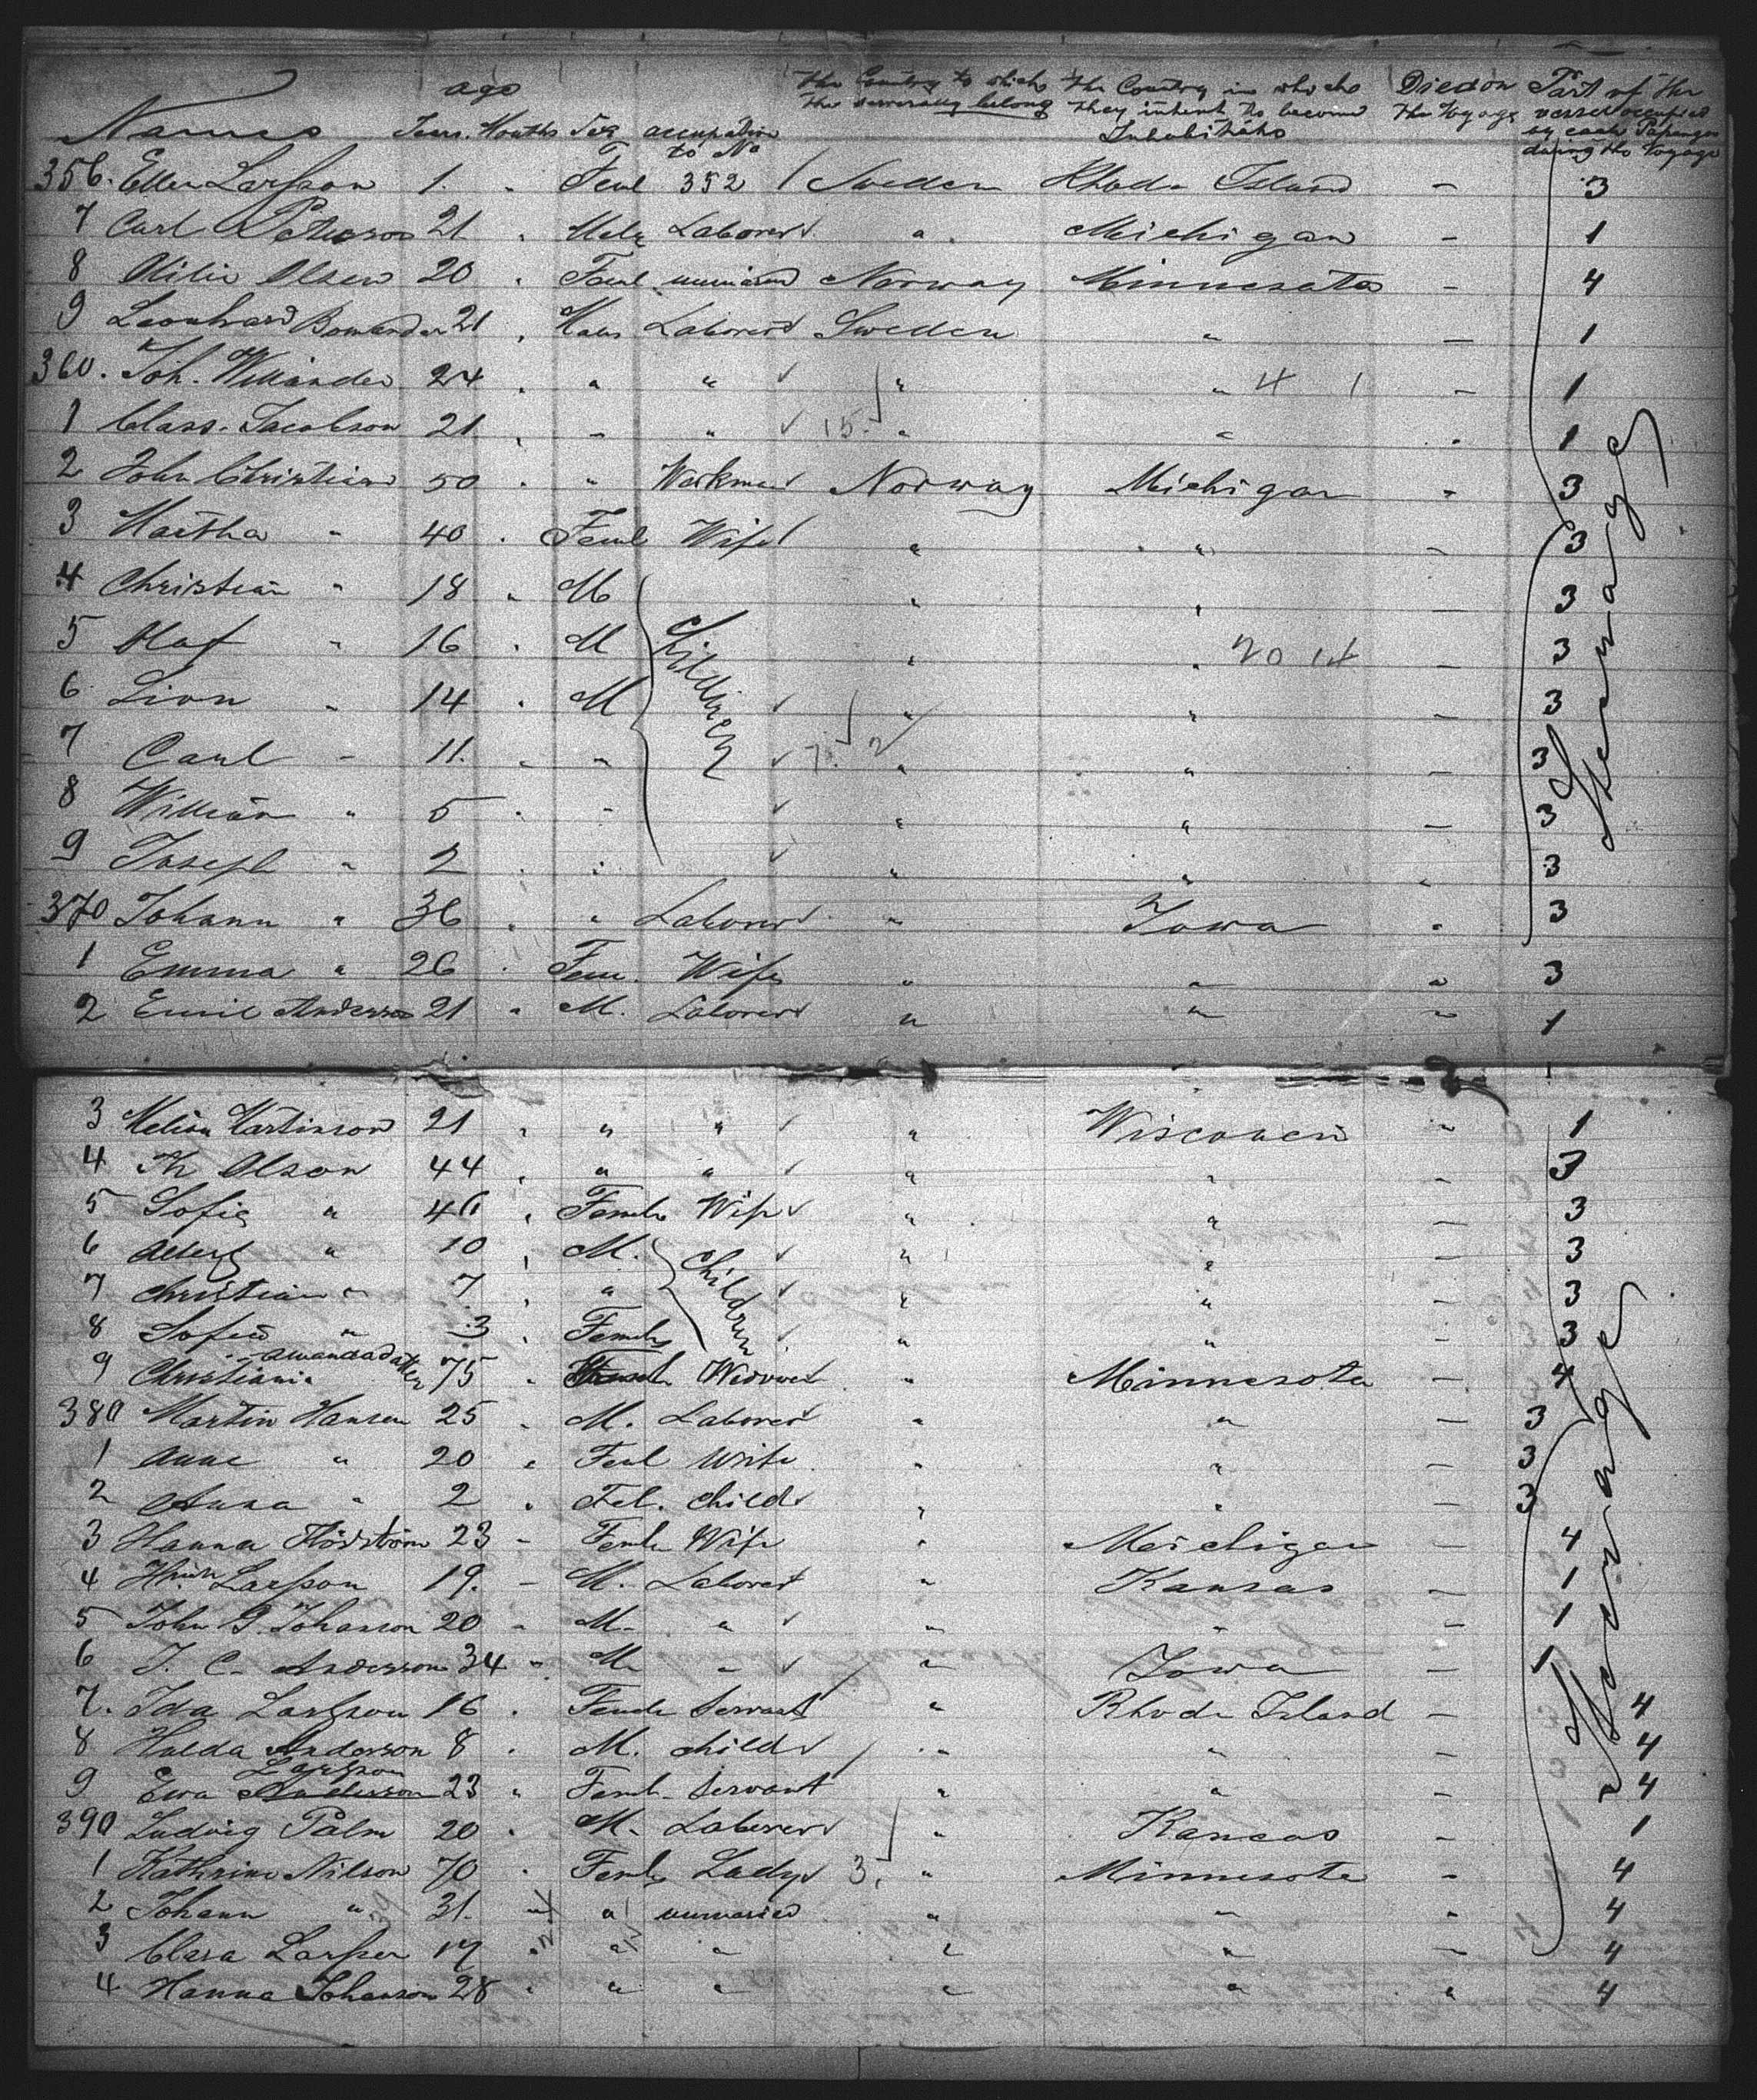 ago The Country to which The Country in which Died on Part of the
the severally belong they intend to become the Voyage vessel occupied
Names Years. Months Sex occupation Inhabitants by each Passenger
during the Voyage
to No
356. Ellen Larsson 1. " Feml 352 Sweden Rhode Island - 3
7 Carl Peterson 21 " Male Laborer " Michigan - 1
8 Olsen 20 " Feml Norway Minnesota - 4
9 Leonhard 21 " Laborer Sweden " - 1
360. Joh. Willander 24 " " " " " 4 1 - 1
1 Class. Jacobson 21 " " " 15. " " - 1
2 John Christian 50 " " Workman Norway Michigan " 3
3 Martha " 40 " Feml Wife " " - 3
4 Christian " 18 " M " " - 3
5 Olaf " 16 " M Children " " 20 14 - 3
6 " 14 " M " " - 3
7 Carl " 11. " " 7. 2 " " - 3
8 William " 5 " " " " - 3
9 Joseph " 2 " " " " " 3
370 Johann " 36 " " Laborer " Iowa " 3
1 Emma " 26 " Fem. Wife " " " 3
2 Emil Anderson 21 " M. Laborer " " " 1
Steerage
3 Martinson 21 " " " " Wisconsin " 1
4 Th Olson 44 " " " " " - 3
5 Sofie " 46 " Femle Wife " " - 3
6 Albert " 10 " M. " " - 3
7 Christian " 7 " " Children " " - 3
8 Sofie " 3 " Femle " " - 3
9 Christiania 75 " Widow " Minnesota - 4
380 Martin Hansen 25 " M. Laborer " " - 3
1 Anne " 20 " Feml Wife " " - 3
2 Anna " 2 " Fel. Child " " - 3
3 Hanna 23 - Femle Wife " Michigan - 4
4 Larsson 19. - M. Laborer " Kansas - 1
5 John G. Johanson 20 " M. " " " - 1
6 J. C. Anderson 34 " M. " " Iowa - 1
7. Ida Larsson 16 " Femle Servant " Rhode Island - 4
8 Hulda Anderson 8 " M. Child " " - 4
Larsson
9 Ewa Anderson 23 " Feml. Servant " " - 4
390 Ludvig Palm 20 " M. Laborer " Kansas - 1
1 Kathrine Nilson 70 " Femle Lady 3. " Minnesota - 4
2 Johann " 31. " " unmaried " " " 4
3 Clara Larsson " " " " " - 4
4 Hanna Johanson 28 " " " " " " 4
Steerage